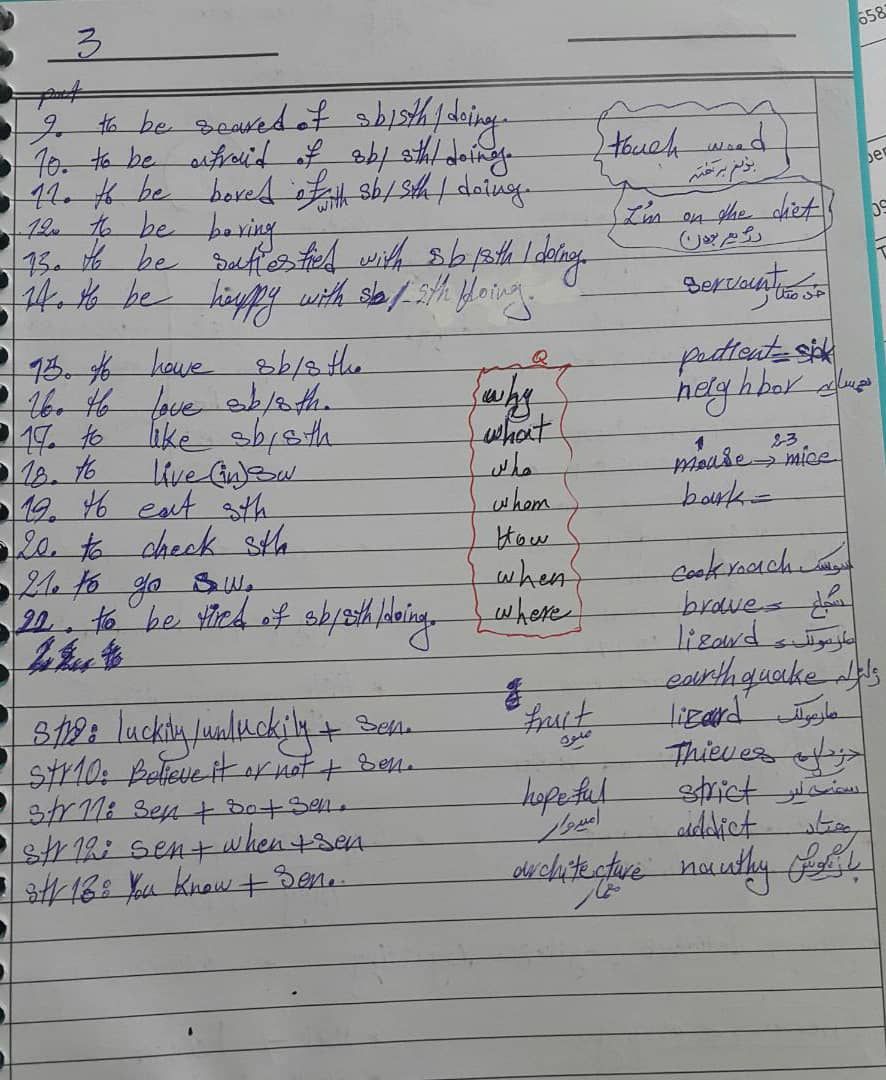 3
part
9. to be scared of sb/sth/doing.
10. to be afraid of sb/sth/doing.
11. to be bored of with sb/sth/doing.
12. to be boring
13. to be satiesfied with sb/sth/doing.
14. to be happy with sb/sth/doing.
15. to have sb/sth.
16. to love sb/sth.
17. to like sb/sth
18. to live (in) sw
19. to eat sth
20. to check sth
21. to go sw.
22. to be tired of sb/sth/doing.
str9: luckily/unluckily + sen.
str10: Believe it or not + sen.
str11: sen + so + sen.
str12: sen + when + sen
str13: You know + sen.
Q
why
what
who
whom
How
when
where
fruit
میوه
hopeful
امیدوار
architecture
معمار
touch wood
بزنم به تخته
I'm on the diet
رژیم بودن
servant خدمتکار
patient = sick
neighbor همسایه
1 2-3
mouse → mice
bark =
cookroach سوسک
brave = شجاع
lizard = مارمولک
earthquake زلزله
lizard مارمولک
Thieves دزدان
strict سخت گیر
addict معتاد
nauthy بازیگوش
658